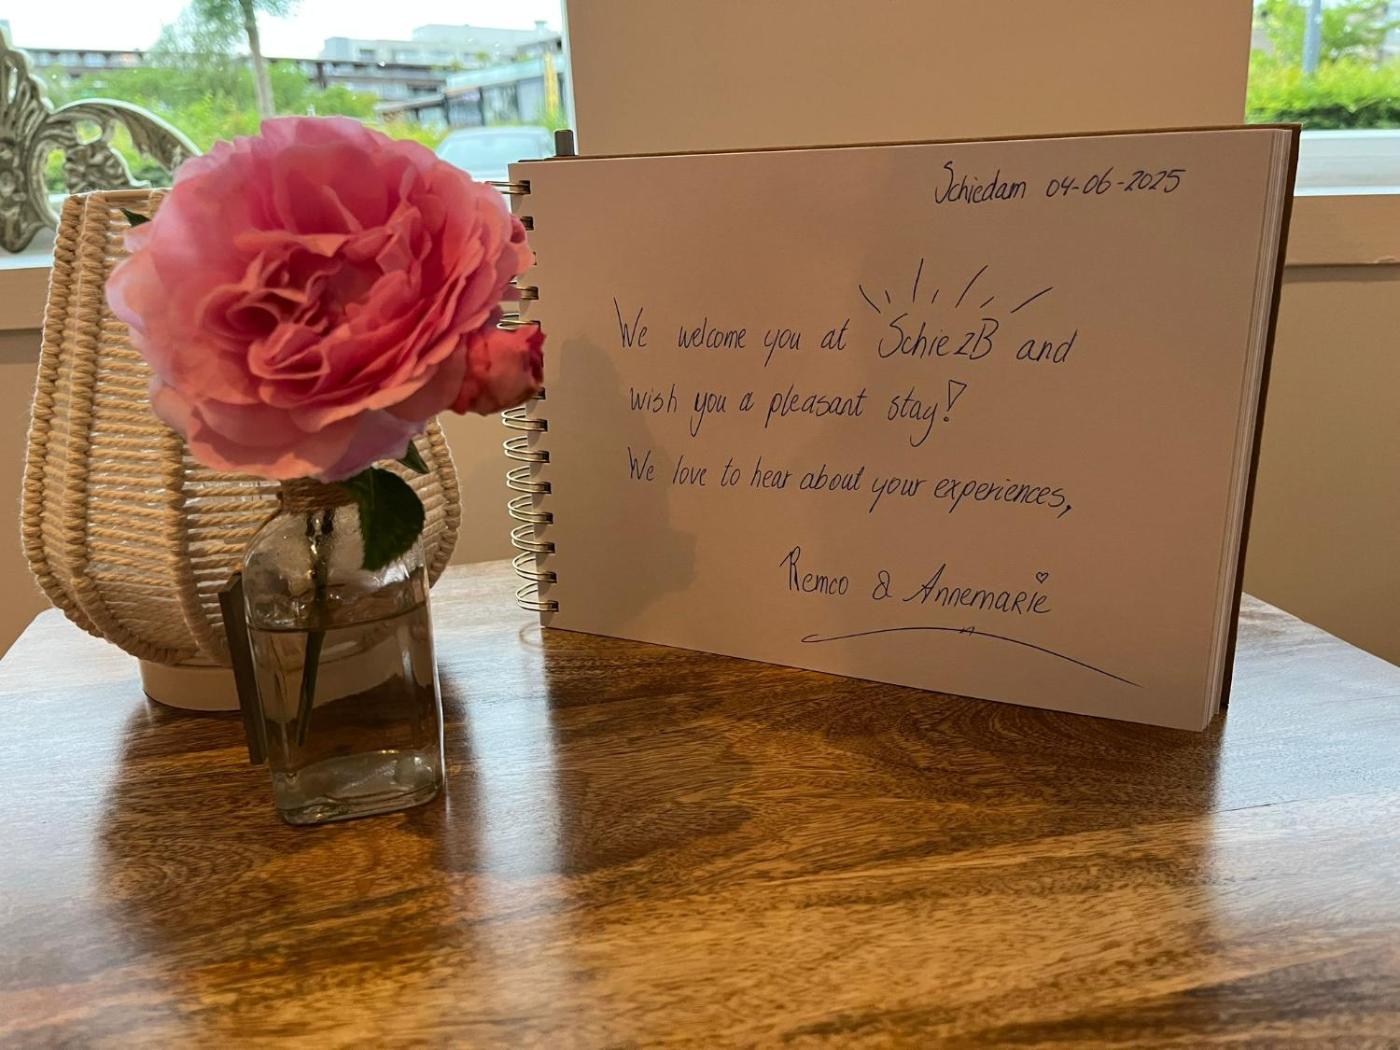 Schiedam 04-06-2025
We welcome you at SchiezB and
wish you a pleasant stay!
We love to hear about your experiences,
Remco & Annemarie